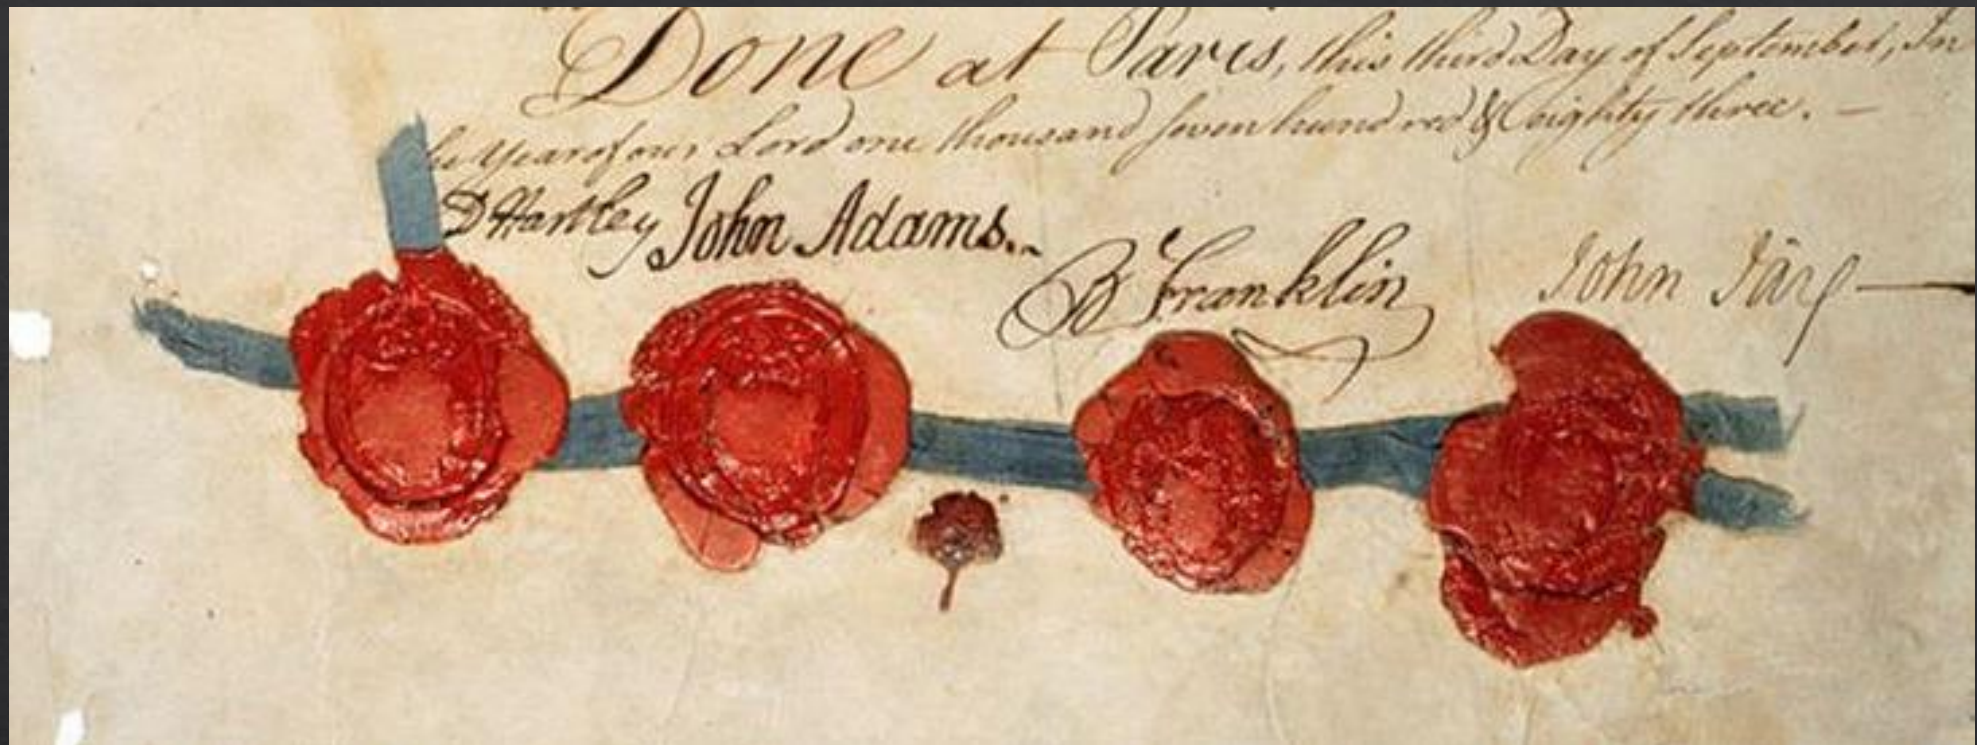 Done at Paris, this third Day of September, In
the Year of our Lord one thousand seven hundred & eighty three. —
D Hartley John Adams.
B Franklin
John Jay